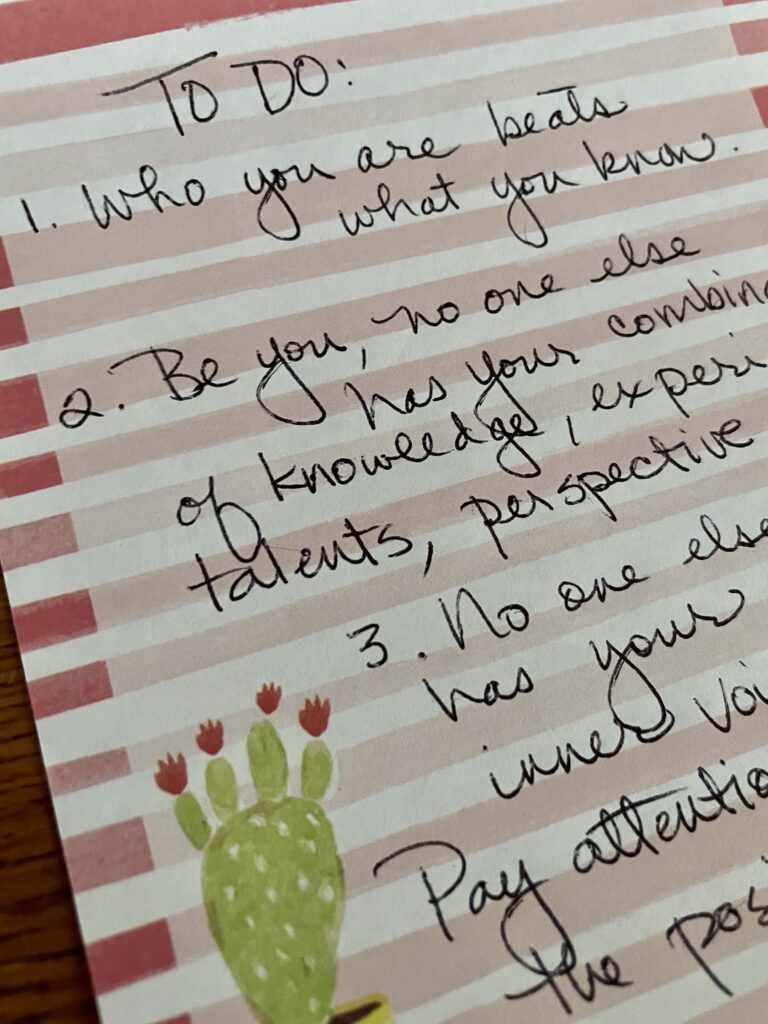 TO DO:
1. Who you are beats
what you know.
2. Be you, no one else
has your combin
of knowledge, experi
talents, perspective
3. No one else
has your
inner voi
Pay attentio
the pos